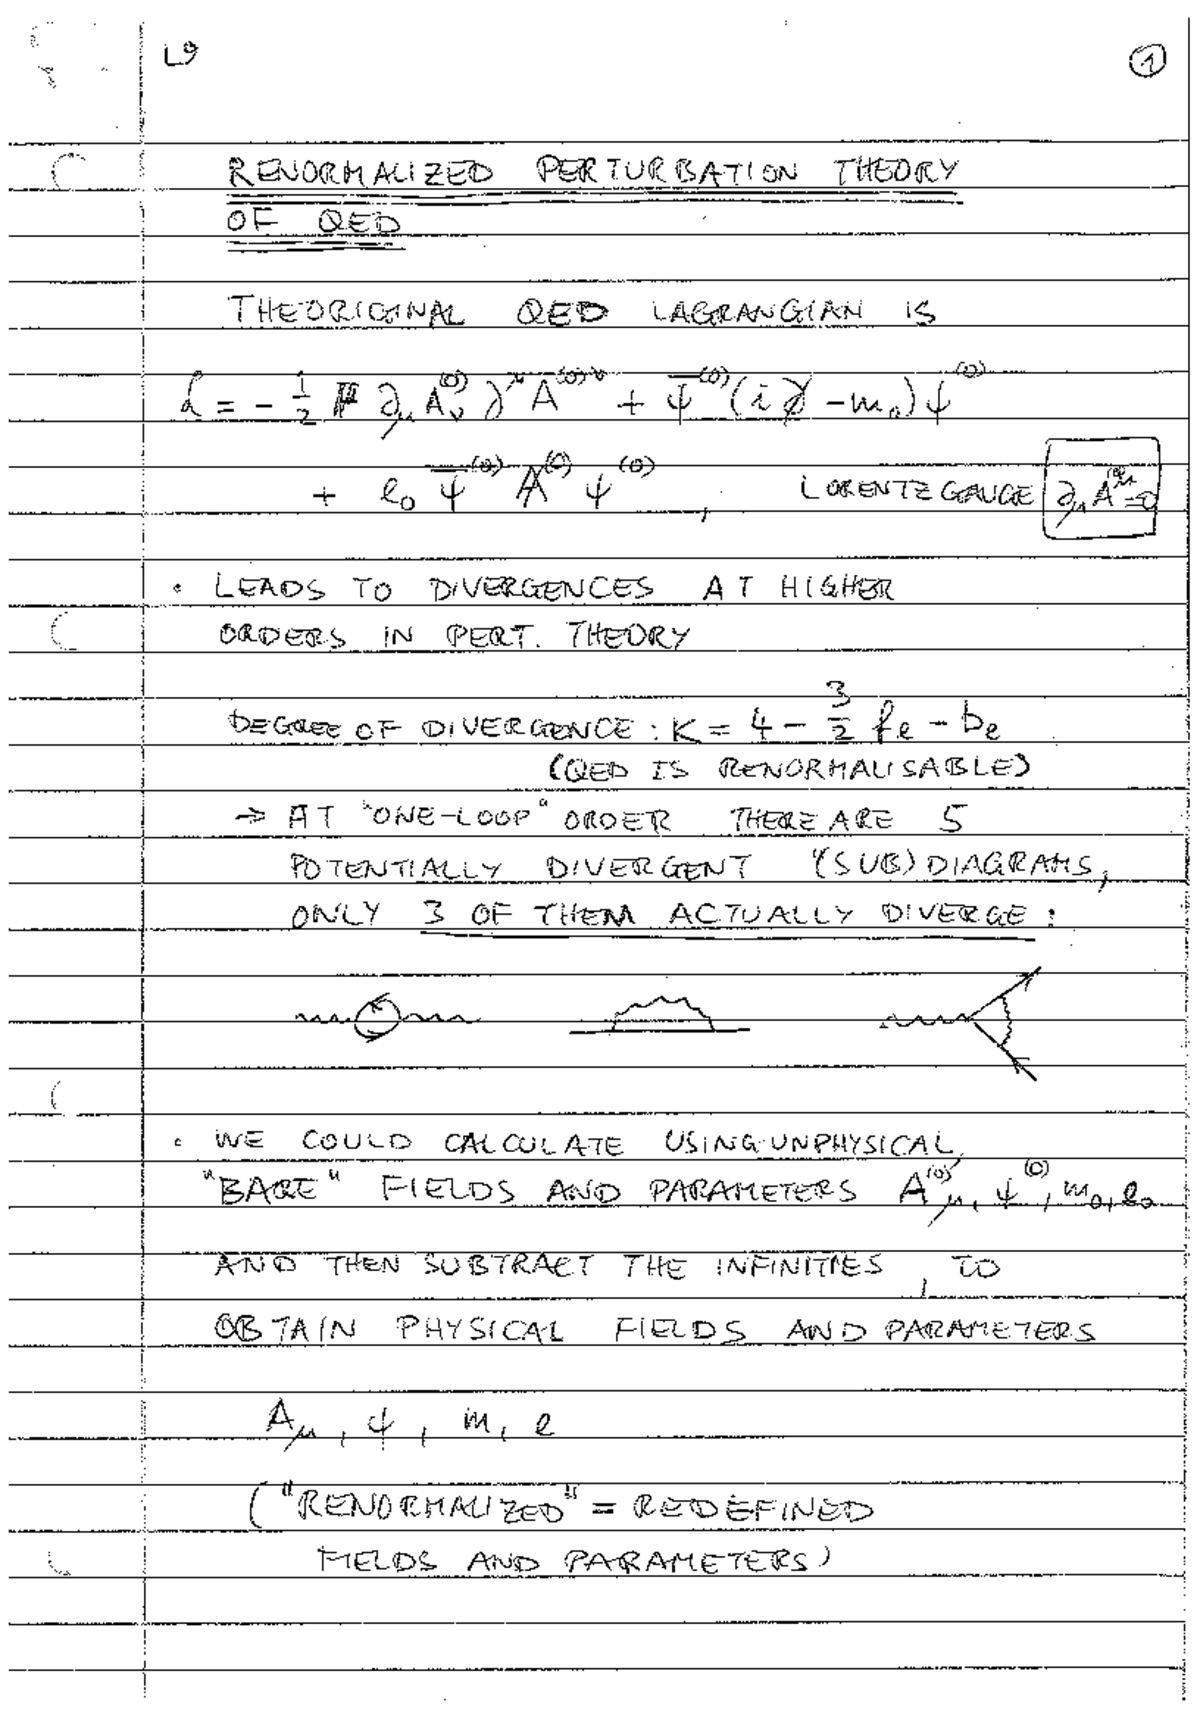 L9
①
RENORMALIZED PERTURBATION THEORY
OF QED
THE ORIGINAL QED LAGRANGIAN IS
ℒ = - 1/2 ∂_μ A_ν^(0) ∂^μ A^(0)ν + ψ̄^(0) (i∂̸ - m_0) ψ^(0)
+ e_0 ψ̄^(0) A̸^(0) ψ^(0) , LORENTZ GAUGE ∂_μ A^(0)μ = 0
• LEADS TO DIVERGENCES AT HIGHER
ORDERS IN PERT. THEORY
DEGREE OF DIVERGENCE : K = 4 - 3/2 f_e - b_e
(QED IS RENORMALISABLE)
⇒ AT "ONE-LOOP" ORDER THERE ARE 5
POTENTIALLY DIVERGENT "(SUB) DIAGRAMS,
ONLY 3 OF THEM ACTUALLY DIVERGE :
• WE COULD CALCULATE USING UNPHYSICAL
"BARE" FIELDS AND PARAMETERS A_μ^(0), ψ^(0), m_0, e_0
AND THEN SUBTRACT THE INFINITIES, TO
OBTAIN PHYSICAL FIELDS AND PARAMETERS
A_μ, ψ, m, e
("RENORMALIZED" = REDEFINED
FIELDS AND PARAMETERS)